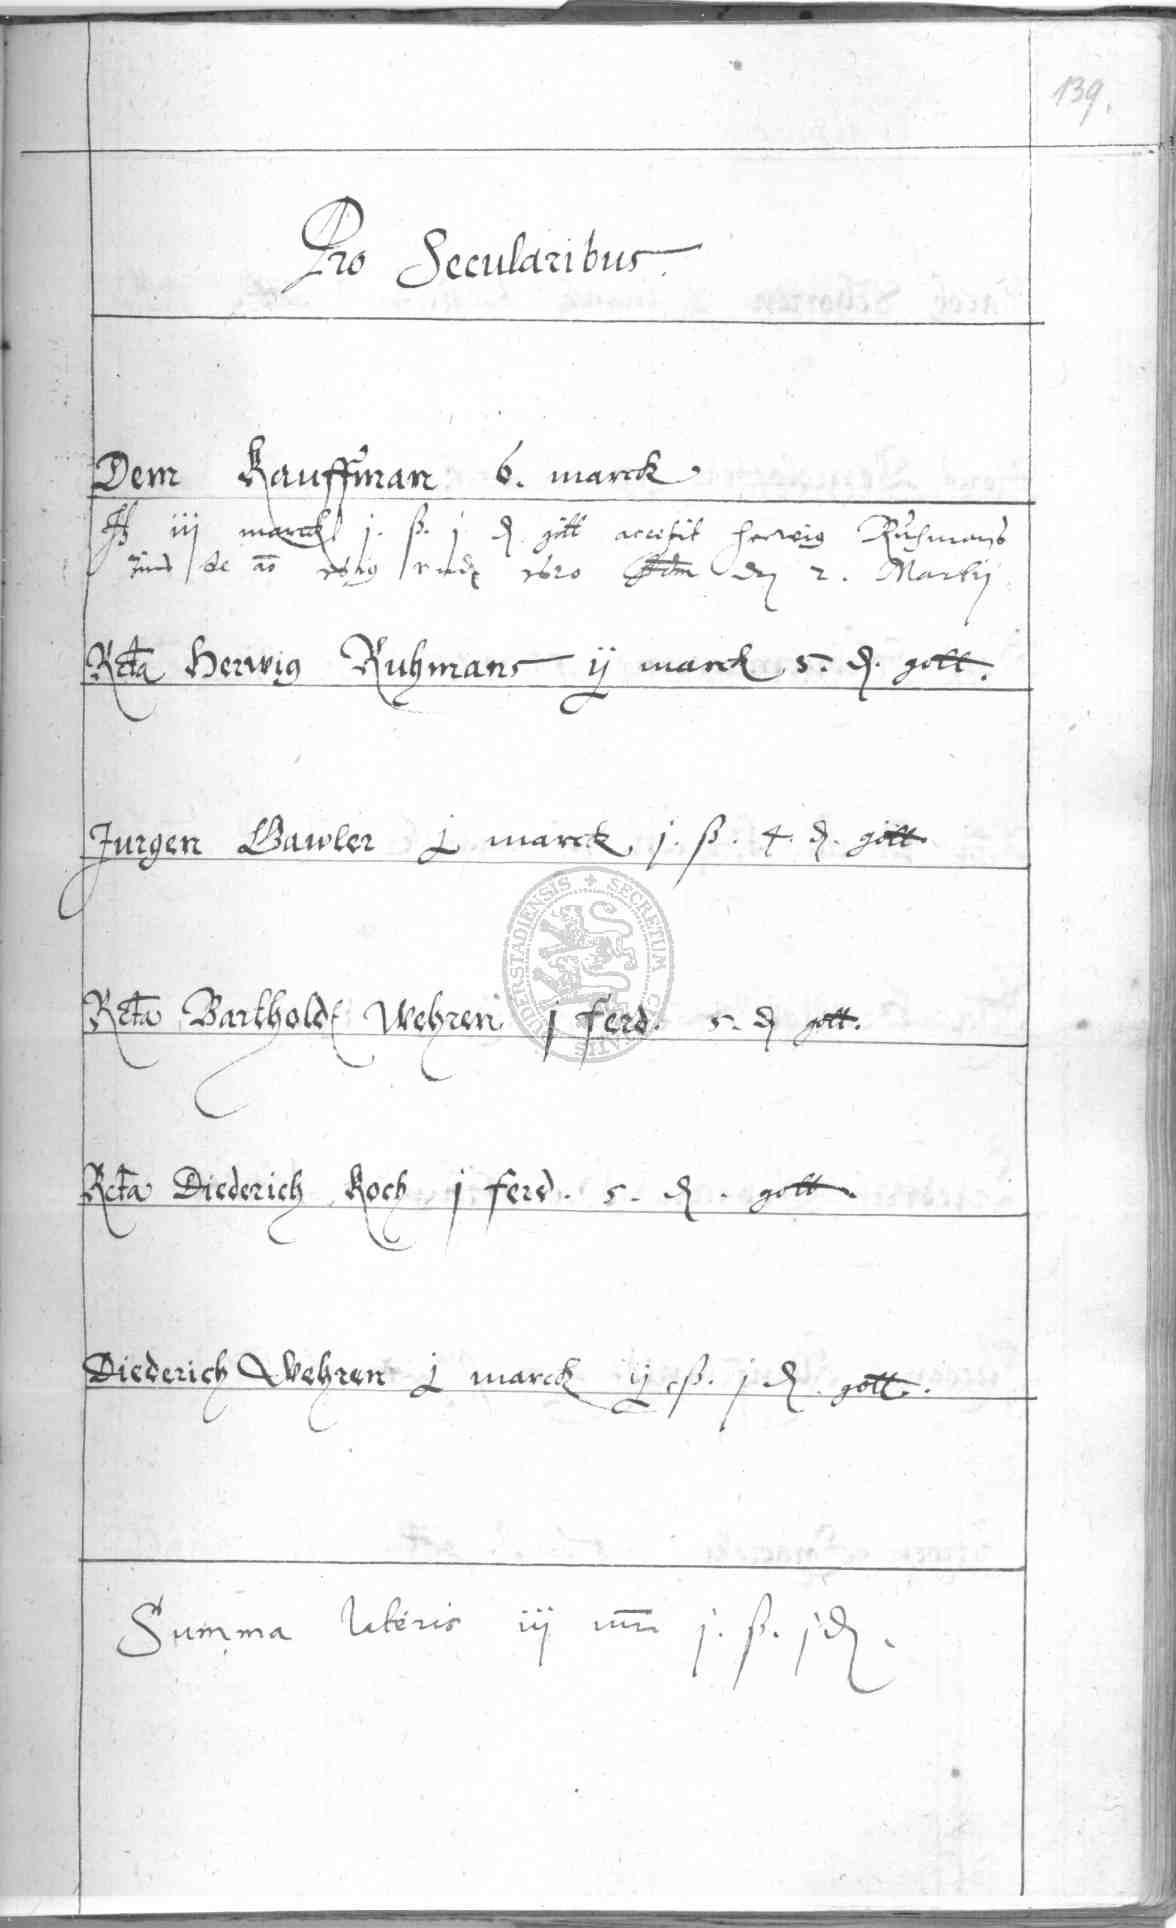 139.
Pro Secularibus
Dem Kauffman 6. marck
iij marck j. ß. j ₰ gött accepit herwig Ruhmans
Zins de ao vnd 1620 den 2. Martij
Rcta Herwig Ruhmans ij marck 5. ₰. gött.
Jurgen Bawler j marck j. ß. 4. ₰. gött
Rcta Barthold Wehren j ferd. 5. ₰ gött.
Rcta Diederich Koch j ferd. 5. ₰. gött.
Diederich Wehren j marck ij ß. j ₰. gött.
Summa lateris iij mr j. ß. j ₰.
SECRETUM CIVITATIS DUDERSTADIENSIS